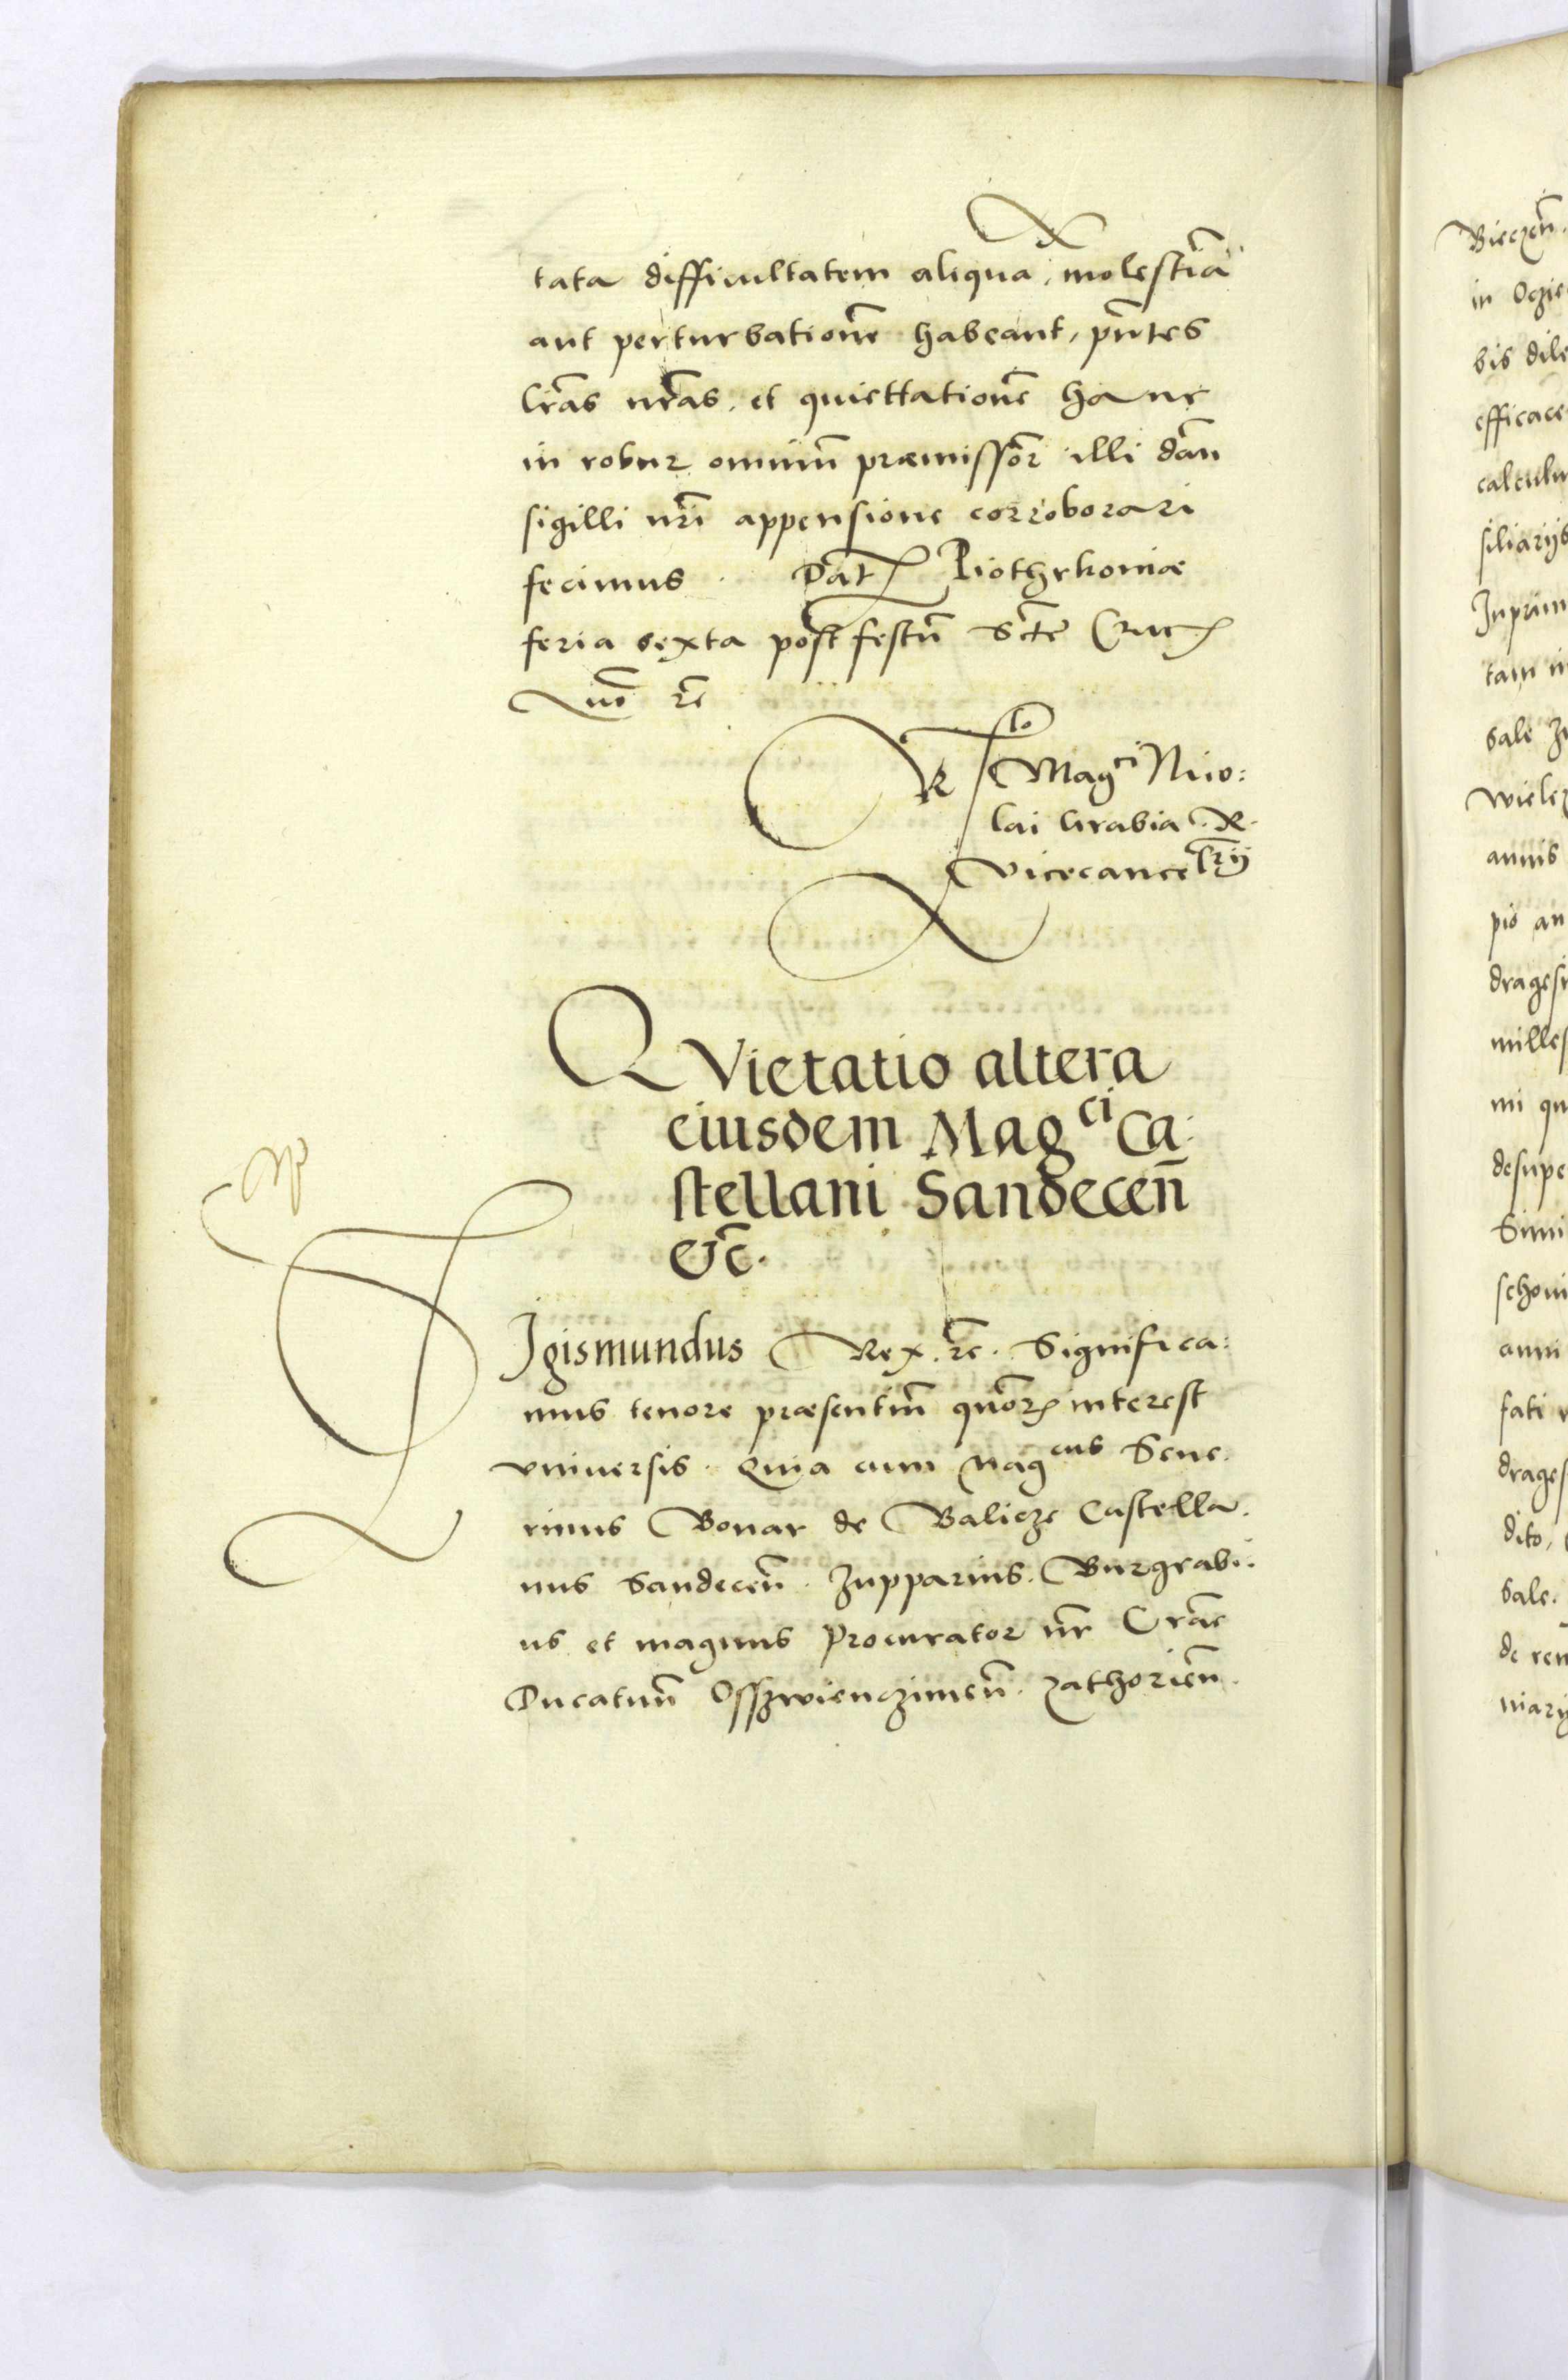 tata difficultatem aliquā, molestiā
aut perturbationē habeant, pn̄tes
lr̄as nr̄as, et quiettationē hanc
in robur omniū præmissor̄ illi dān
sigilli nr̄i appensione corroborari
fecimus. Dat Piothrkoniæ
feria sexta post festū Sctē Cruc
Anō rc̄
Rlo Magci Nico:
lai Grabia R.
Vicecancelrij
QVietatio altera
eiusdem Magci Ca:
stellani Sandecen̄
&c̄.
Igismundus Rex. rc̄. Significa:
mus tenore præsentiū quor̄ interest
vniuersis. Quia cum Magcus Seue.
rinus Bonar de Balicze Castella.
nus Sandecen̄. Zupparius. Burgrabi.
us et magnus Procurator nr̄ Crāc
Ducatuū Osszwienczimen̄. Zathorien̄.
Bieczen̄.
in Oczie
bis dile
efficace
calculu
siliarijs
Inprim
tam in
sale
annis
pio an
dragesi
milles
mi qu
desupe
Simi
schoni
anni
fati
drages
dito,
sale.
de rem
niarij